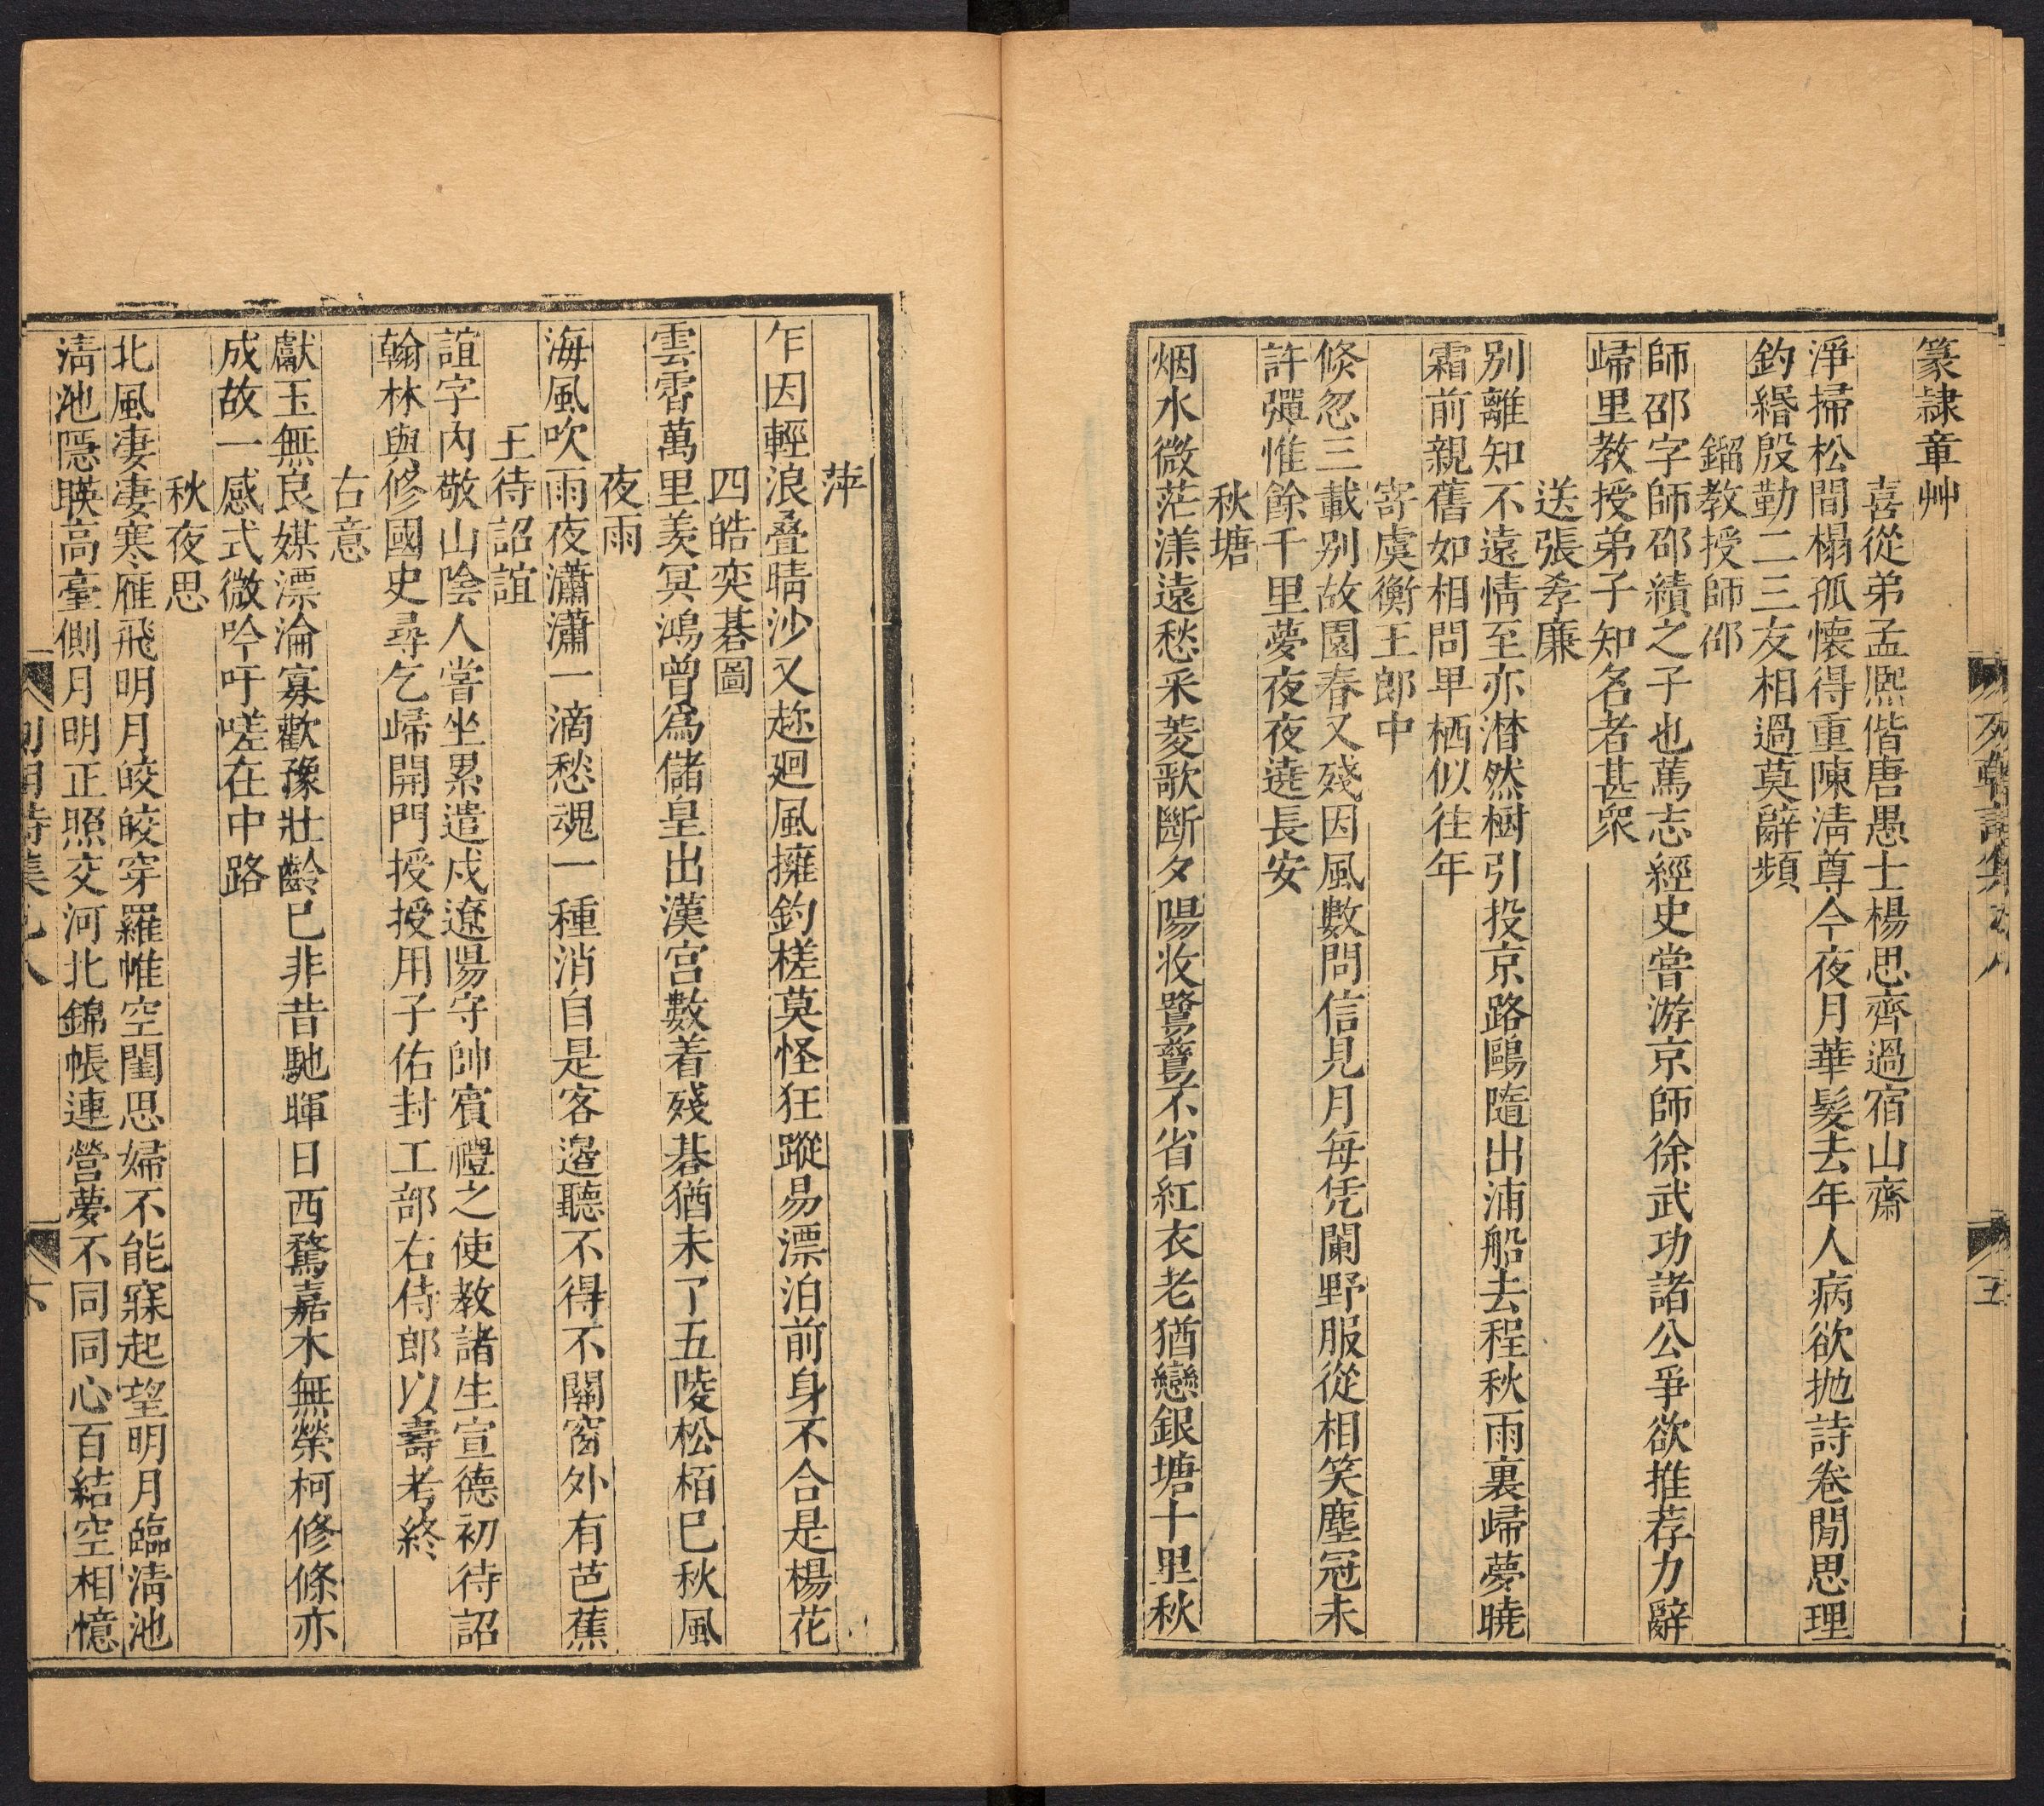 篆隷章艸
喜從弟孟熙偕唐愚士楊思齊過宿山齋
淨掃松間榻孤懷得重陳淸尊今夜月華髮去年人病欲抛詩卷閒思理
釣緡殷勤二三友相過莫辭頻
鎦教授師邵
師邵字師邵績之子也萬志經史嘗游京師徐武功諸公爭欲推荐力辭
歸里教授弟子知名者甚眾
送張孝廉
別離知不遠情至亦潸然樹引投京路鷗隨出浦船去程秋雨裏歸夢曉
霜前親舊如相問早栖似往年
寄虞衡王郎中
倐忽三載别故園春又殘因風數問信見月每凭闌野服從相笑塵冠未
許彈惟餘千里夢夜夜遶長安
秋塘
烟水微茫漾遠愁采菱歌斷夕陽收鷺鷥不省紅衣老猶戀銀塘十里秋
列朝詩集乙八
五
萍
乍因輕浪叠晴沙又趂廻風擁釣槎莫怪狂蹤易漂泊前身不合是楊花
四皓奕碁圖
雲霄萬里羨冥鴻曾爲儲皇出漢宫數着殘碁猶未了五陵松栢巳秋風
夜雨
海風吹雨夜瀟瀟一滴愁魂一種消自是客邉聽不得不關窗外有芭蕉
王待詔誼
誼字内敬山陰人嘗坐累遣戍遼陽守帥賓禮之使教諸生宣德初待詔
翰林與修國史尋乞歸開門授授用子佑封工部右侍郎以壽考終
右意
獻玉無良媒漂淪寡歡豫壯齡已非昔馳暉日西騖嘉木無榮柯修條亦
成故一感式微吟吁嗟在中路
秋夜思
北風凄凄寒雁飛明月皎皎穿羅帷空閨思婦不能寐起望明月臨淸池
淸池隱暎高臺側月明正照交河北錦帳連營夢不同同心百結空相憶